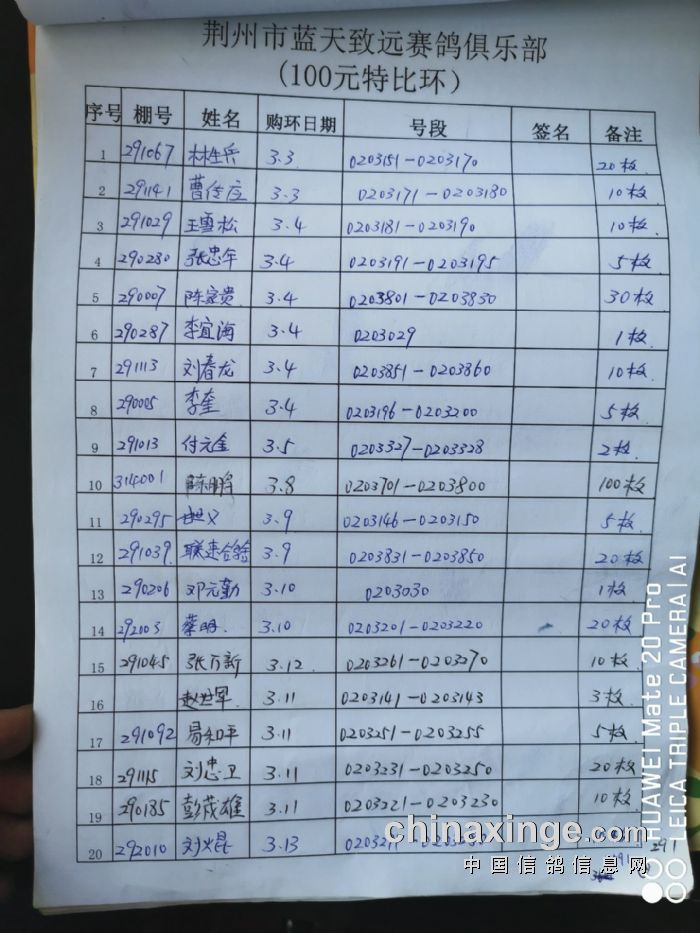 荆州市蓝天致远赛鸽俱乐部
(100元特比环)
序号 棚号 姓名 购环日期 号段 签名 备注
1 291067 林生兵 3.3 0203151-0203170 20枚
2 291141 曹传应 3.3 0203171-0203180 10枚
3 291029 王雪松 3.4 0203181-0203190 10枚
4 290280 张忠年 3.4 0203191-0203195 5枚
5 290007 陈家贵 3.4 0203801-0203830 30枚
6 290287 李宜海 3.4 0203029 1枚
7 291113 刘春龙 3.4 0203851-0203860 10枚
8 290005 李奎 3.4 0203196-0203200 5枚
9 291013 付元金 3.5 0203327-0203328 2枚
10 314001 陈鹏 3.8 0203701-0203800 100枚
11 290295 3.9 0203146-0203150 5枚
12 291039 联速合鸽 3.9 0203831-0203850 20枚
13 290206 邓元勤 3.10 0203030 1枚
14 292003 蔡明 3.10 0203201-0203220 20枚
15 291045 张万新 3.12 0203261-0203270 10枚
16 赵世军 3.11 0203141-0203143 3枚
17 291092 易和平 3.11 0203251-0203255 5枚
18 291115 刘忠卫 3.11 0203231-0203250 20枚
19 290185 彭茂雄 3.11 0203221-0203230 10枚
20 292010 刘火焜 3.13
chinaxinge.com
中国信鸽信息网
291
HUAWEI Mate 20 Pro
LEICA TRIPLE CAMERA | AI